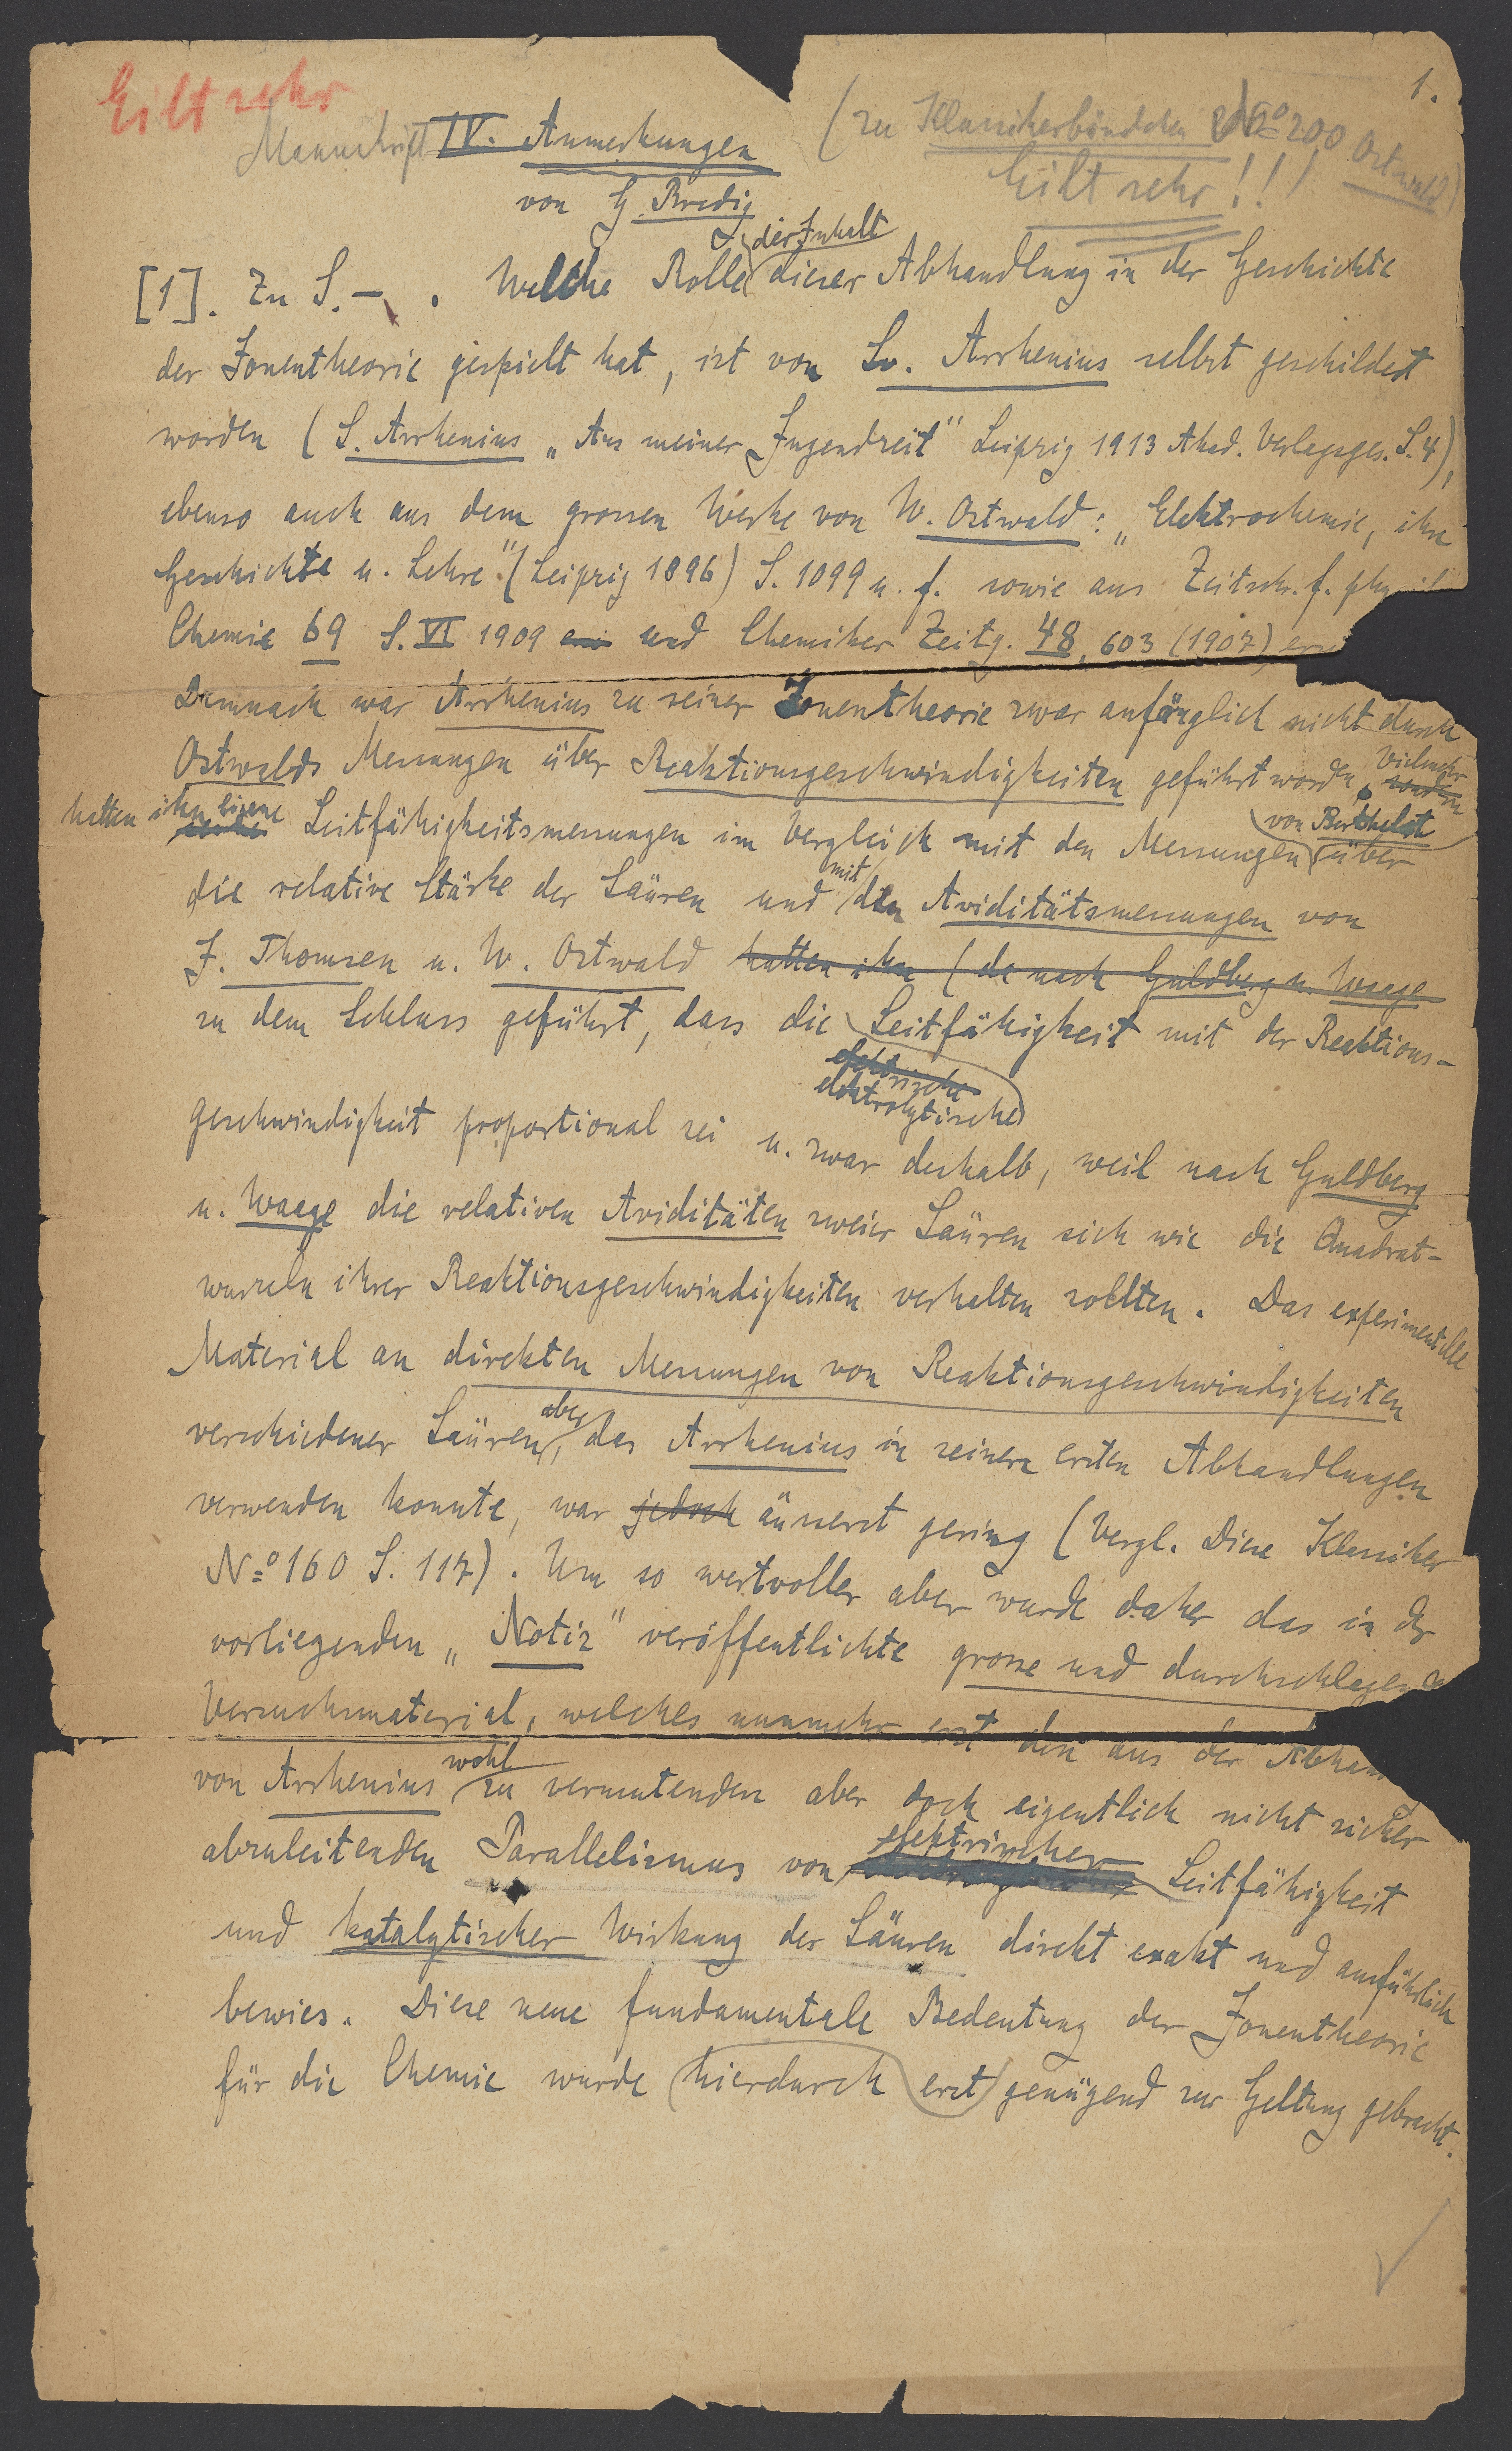 1.
Eilt sehr
(zu Klassikerbändchen No 200 Ostwald)
Manuskript IV. Anmerkungen
Eilt sehr!!!
von G. Bredig
der Inhalt
[1]. Zu S. – . Welche Rolle dieser Abhandlung in der Geschichte
der Ionentheorie gespielt hat, ist von Sv. Arrhenius selbst geschildert
worden (S. Arrhenius „Aus meiner Jugendzeit" Leipzig 1913 Akad. Verlagsges. S. 4),
ebenso auch aus dem grossen Werke von W. Ostwald: „Elektrochemie, ihre
Geschichte u. Lehre." (Leipzig 1896) S. 1099 u. f. sowie aus Zeitsch. f. phys
Chemie 69 S. VI 1909 und Chemiker Zeitg. 48, 603 (1907)
Demnach war Arrhenius zu seiner Ionentheorie zwar anfänglich nicht durch
Ostwalds Messungen über Reaktionsgeschwindigkeiten geführt worden. Vielmehr sondern
hatten ihn eigene Leitfähigkeitsmessungen im Vergleich mit den Messungen von Berthelot über
die relative Stärke der Säuren und mit den Aviditätsmessungen von
J. Thomsen u. W. Ostwald hatten ihn (da nach Guldberg u. Waage
zu dem Schluss geführt, dass die Leitfähigkeit mit der Reaktions-
elektrische
elektrolytische
geschwindigkeit proportional sei u. zwar deshalb, weil nach Guldberg
u. Waage die relativen Aviditäten zweier Säuren sich wie die Quadrat-
wurzeln ihrer Reaktionsgeschwindigkeiten verhalten sollten. Das experimentelle
Material an direkten Messungen von Reaktionsgeschwindigkeiten
verschiedener Säuren aber, das Arrhenius in seinen ersten Abhandlungen
verwenden konnte, war jedoch äusserst gering (Vergl. Diese Klassiker
No 160 S. 117). Um so wertvoller aber wurde daher das in der
vorliegenden „Notiz" veröffentlichte grosse und durchschlagende
Versuchsmaterial, welches nunmehr erst den aus der Abhan
von Arrhenius wohl zu vermutenden aber doch eigentlich nicht sicher
abzuleitenden Parallelismus von elektrischer Leitfähigkeit
und katalytischer Wirkung der Säuren direkt exakt und ausführlich
bewies. Diese neue fundamentale Bedeutung der Ionentheorie
für die Chemie wurde hierdurch erst genügend zur Geltung gebracht.